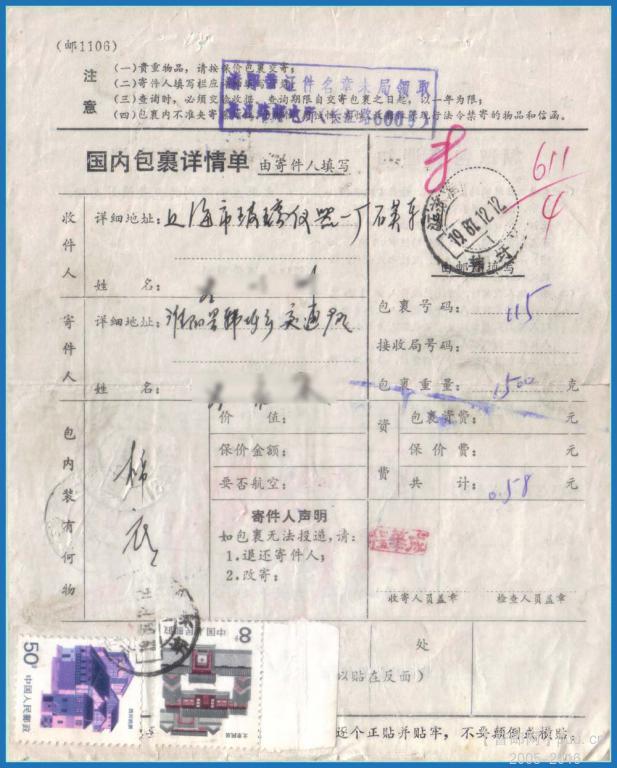 (邮1106)
注意
(一)贵重物品,请按保价包裹交寄;
(二)寄件人填写栏应
(三)查询时,必须交验收据,查询期限自交寄包裹之日起,以一年为限;
(四)包裹内不准夹寄 现行法令禁寄的物品和信函。
证件名章来局领取
国内包裹详情单 由寄件人填写
611
4
19 87.12.12
收件人
详细地址:上海市玻璃仪器一厂
姓 名:
由邮局填写
寄件人
详细地址:
姓 名:
包裹号码: 115
接收局号码:
包裹重量: 1500 克
包内装有何物
棉衣
价 值:
保价金额:
要否航空:
资费
包裹资费: 元
保 价 费: 元
共 计: 0.58 元
寄件人声明
如包裹无法投递,请:
1.退还寄件人;
2.改寄:
收寄人员盖章
检查人员盖章
处
以贴在反面)
50分
中国人民邮政
8分
中国人民邮政
北京民居
逐个正贴并贴牢,不要颠倒或横贴.
2005-2016